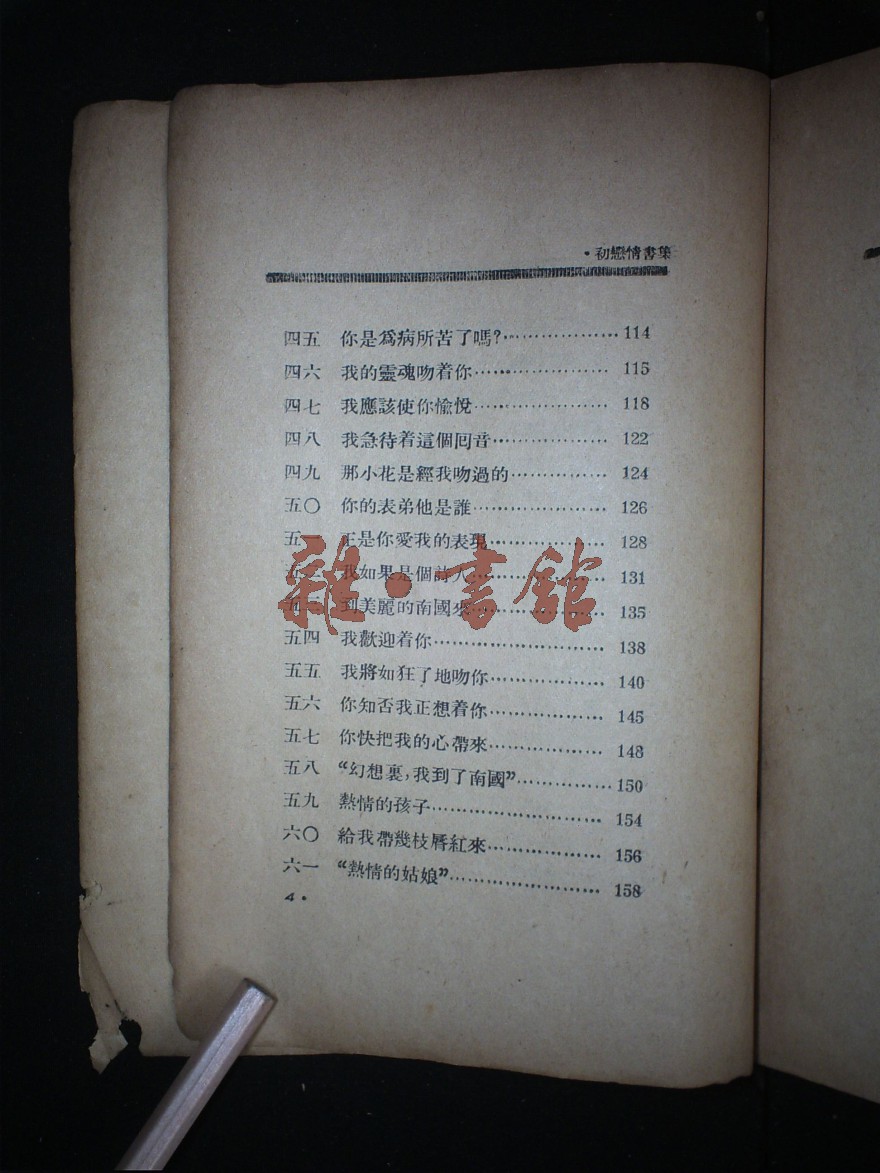 ·初戀情書集
四五 你是爲病所苦了嗎?……………… 114
四六 我的靈魂吻着你……………… 115
四七 我應該使你愉悅……………… 118
四八 我急待着這個囘音……………… 122
四九 那小花是經我吻過的……………… 124
五〇 你的表弟他是誰……………… 126
五一 正是你愛我的表現……………… 128
五二 我如果是個詩人……………… 131
五三 到美麗的南國來……………… 135
五四 我歡迎着你……………… 138
五五 我將如狂了地吻你……………… 140
五六 你知否我正想着你……………… 145
五七 你快把我的心帶來……………… 148
五八 “幻想裏,我到了南國”……………… 150
五九 熱情的孩子……………… 154
六〇 給我帶幾枝脣紅來……………… 156
六一 “熱情的姑娘”……………… 158
4·
雜·書館